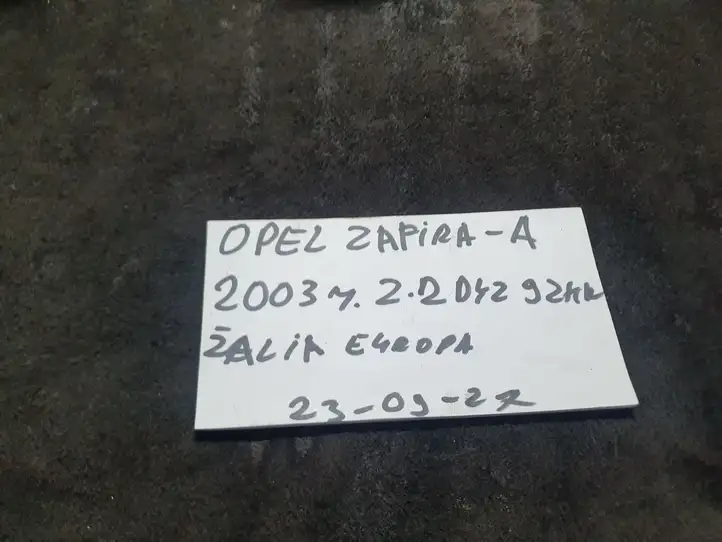 OPEL ZAFIRA-A
2003 m. 2.2 DYZ 92KW
ŽALIA EUROPA
23-09-27